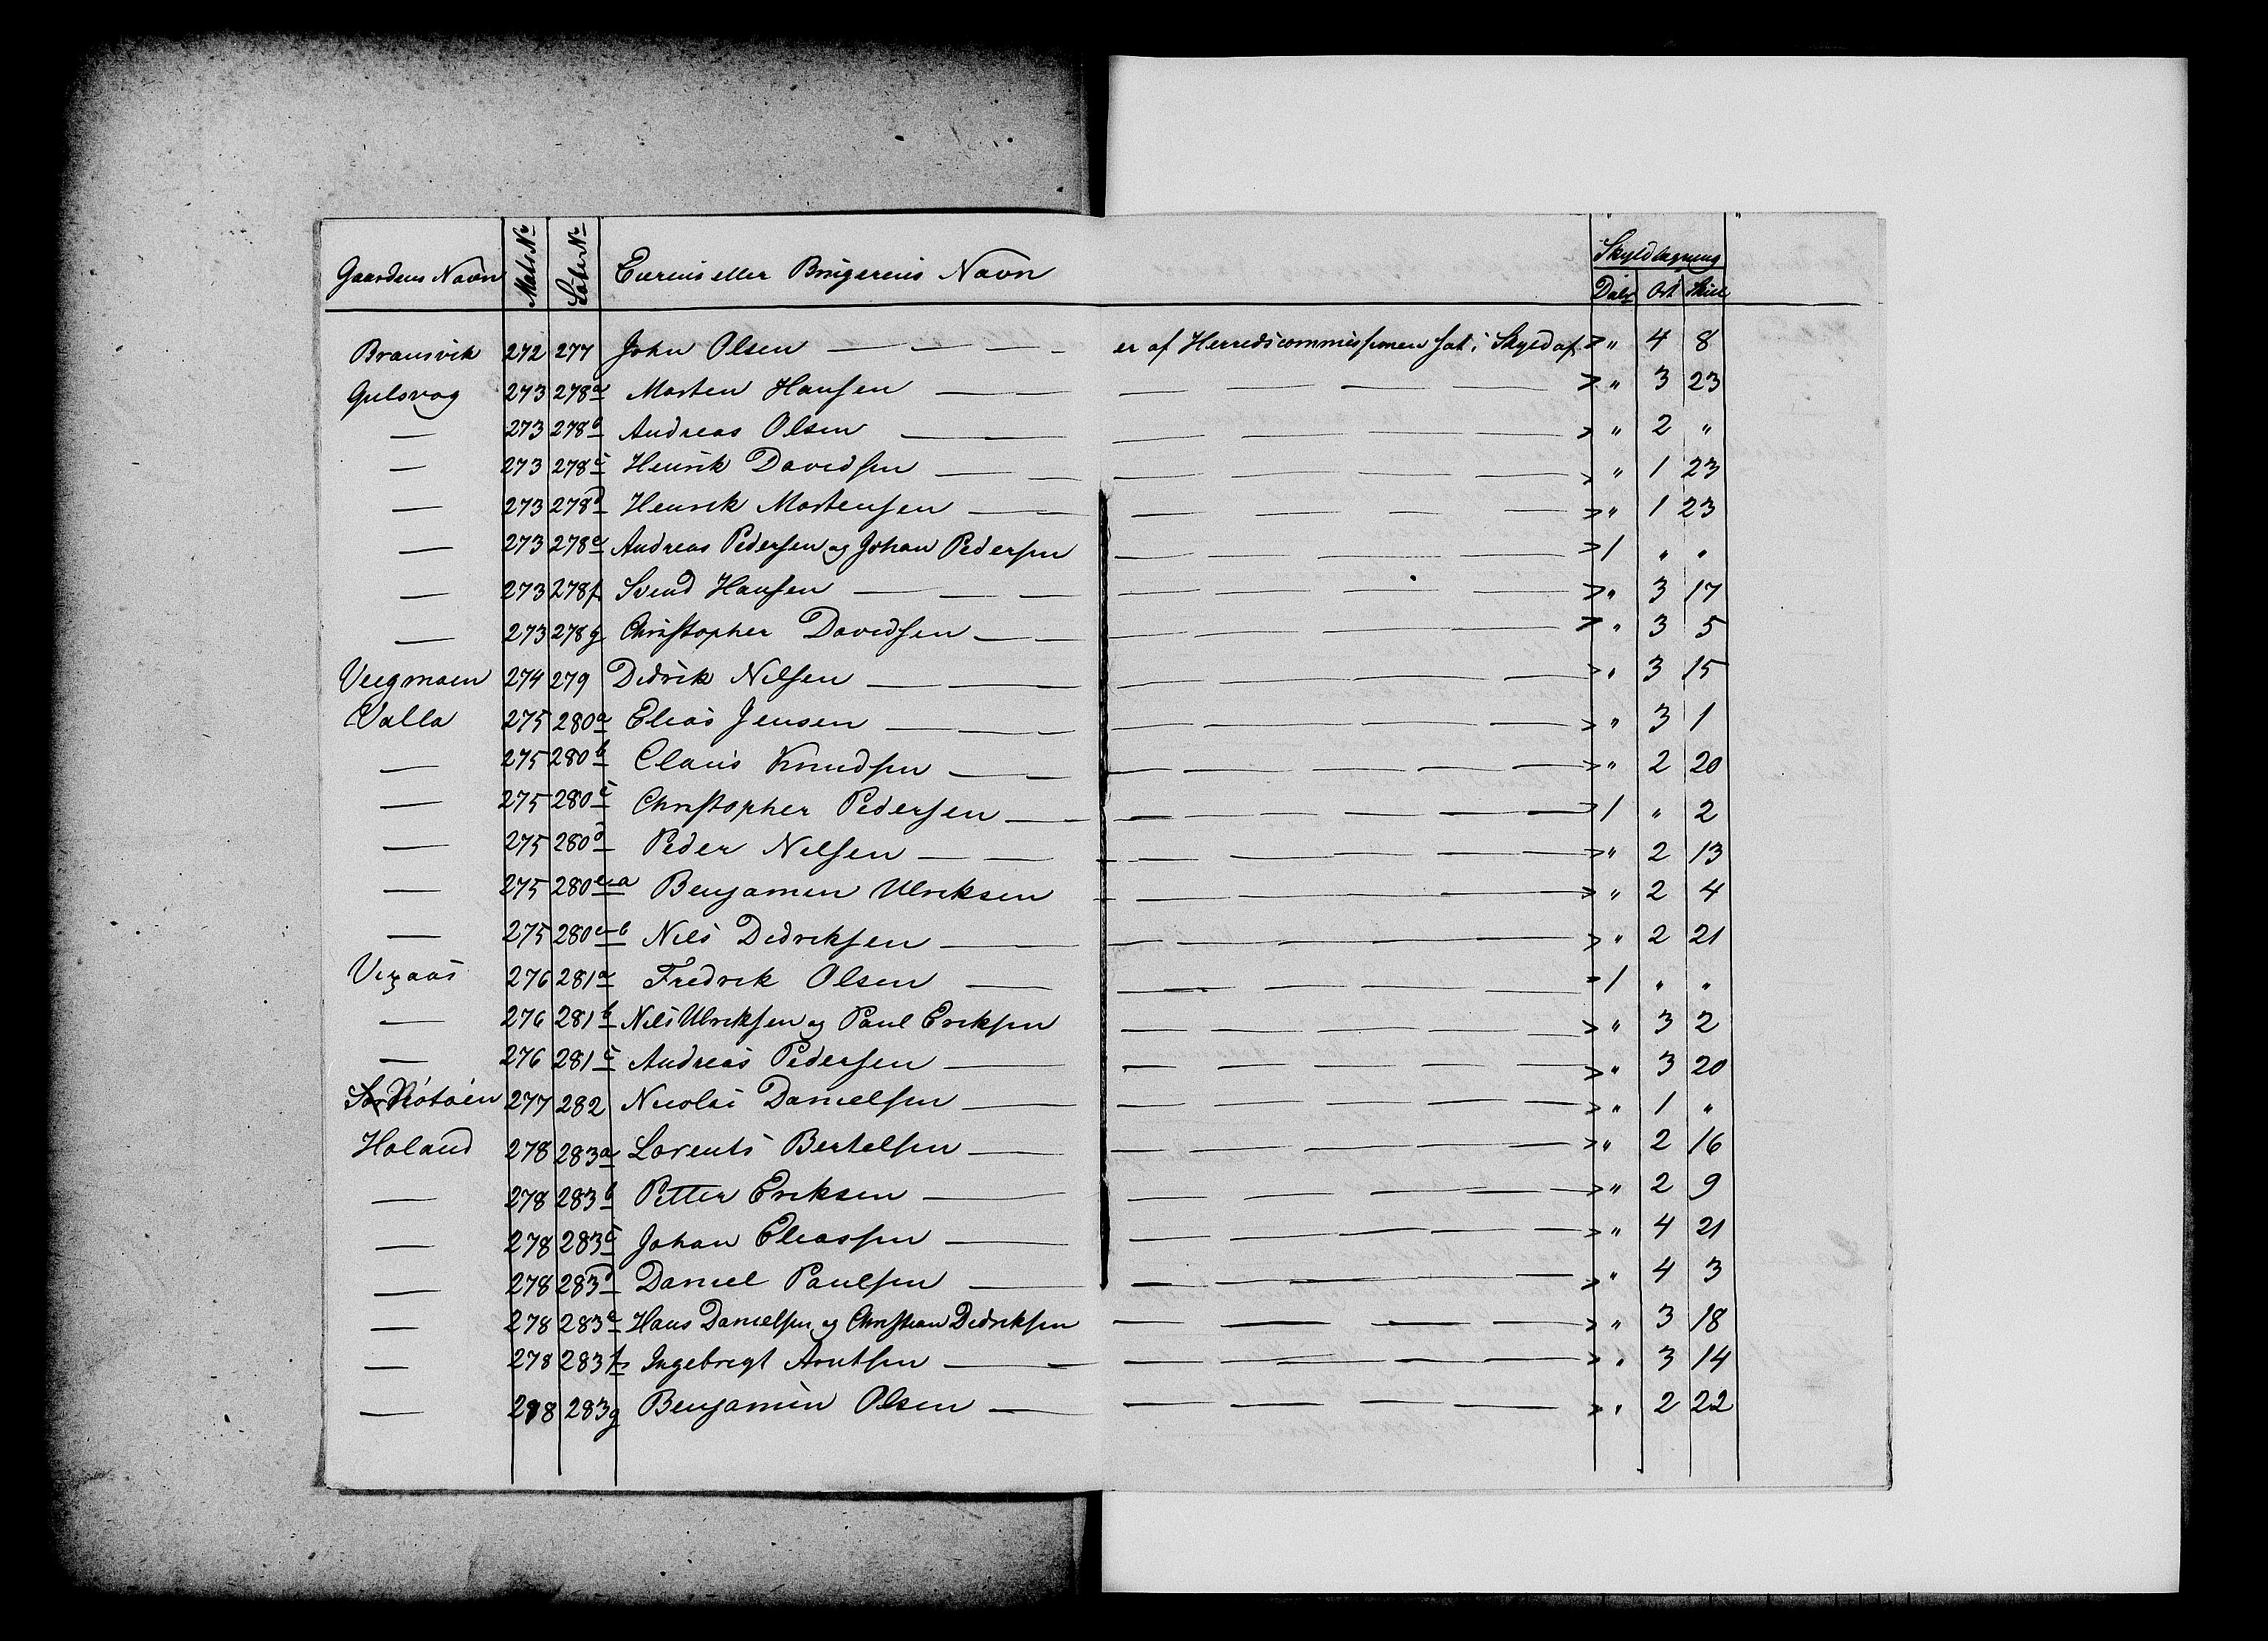 Gaardens Navn Mats. No Løbe No Eierens eller Brugerens Navn Skyldlægning
Daler Ort Skill
Bransvik 272 277 John Olsen — — — — er af Herredscommissionen sat i Skyld af > " 4 8
Gulsvog 273 278a Morten Hansen — — — — — — > " 3 23
— 273 278b Andreas Olsen — — — — — — > " 2 "
— 273 278c Henrik Davidsen — — — — — — > " 1 23
— 273 278d Henrik Mortensen — — — — — — > " 1 23
— 273 278e Andreas Pedersen og Johan Pedersen — — — — > 1 " "
— 273 278f Svend Hansen — — — — — — — > " 3 17
— 273 278g Christopher Davidsen — — — — — — > " 3 5
Vegmoen 274 279 Didrik Nilsen — — — — — — — > " 3 15
Valla 275 280a Elias Jensen — — — — — — — > " 3 1
— 275 280b Claus Knudsen — — — — — — — > " 2 20
— 275 280c Christopher Pedersen — — — — — — > 1 " 2
— 275 280d Peder Nilsen — — — — — — > " 2 13
— 275 280e-a Benjamin Ulriksen — — — — > " 2 4
— 275 280e-b Nils Didriksen — — — — — — > " 2 21
276 281a Fredrik Olsen — — — — — — 1 " "
— 276 281b Nils Ulriksen og Paul Eriksen — — — — — > " 3 2
— 276 281c Andreas Pedersen — — — — — — > " 3 20
277 282 Nicolai Danielsen — — — — — — > " 1 "
Holand 278 283a Lorents Bertelsen — — — — — — > " 2 16
— 278 283b Petter Eriksen — — — — — — > " 2 9
— 278 283c Johan Eliassen — — — — — — > " 4 21
— 278 283d Daniel Paulsen — — — — — — > " 4 3
— 278 283e Hans Danielsen og Christian Didriksen — — — — — > " 3 18
— 278 283f Ingebrigt Arntsen — — — — — — — > " 3 14
— 278 283g Benjamin Olsen — — — — — — — > " 2 22